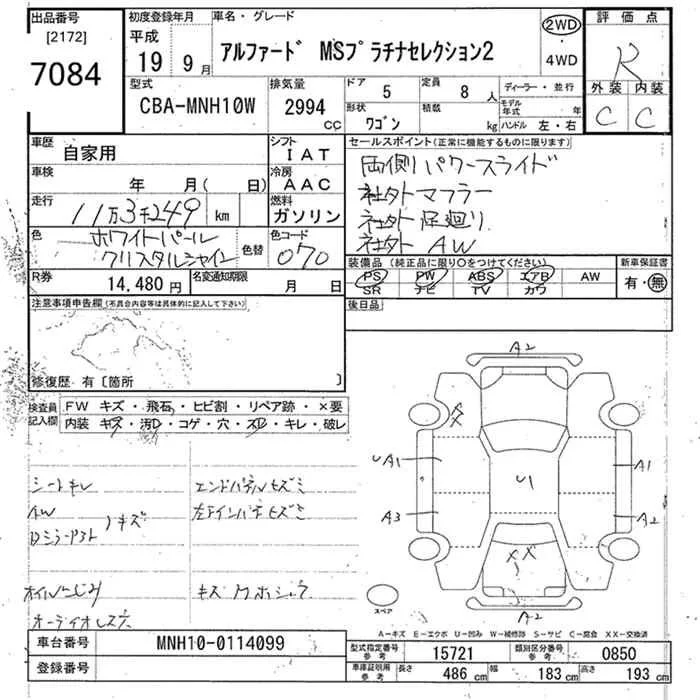 出品番号 初度登録年月 車名・グレード 2WD 評価点
[2172] 平成
7084 19年 9月 アルファード MSプラチナセレクション2 4WD R
型式 排気量 ドア 5 定員 8人 ディーラー・並行 外装 内装
CBA-MNH10W 2994cc 形状 ワゴン 積載 kg モデル年式 年 ハンドル 左・右 C C
車歴 自家用 シフト IAT セールスポイント(正常に機能するものに限ります)
車検 年 月( 日) 冷房 AAC 両側パワースライド
走行 11万3千249 km 燃料 ガソリン 社外マフラー
色 ホワイトパール 色替 色コード 070 社外足廻り
クリスタルシャイン 社外AW
R券 14,480円 名変通知期限 月 日 装備品(純正品に限り○をつけてください) 新車保証書
PS PW ABS エアB AW 有・無
SR ナビ TV カワ
注意事項申告欄(不具合内容等は具体的に記入して下さい) 後日品
修復歴 有〔箇所 〕
検査員記入欄 FW キズ・飛石・ヒビ割・リペア跡・×要
内装 キズ・汚れ・コゲ・穴・スレ・キレ・破レ
A2
UA1 U1 A1
A3 A2
××
A2
スペア
シートキレ エンドパネルヒズミ
AW キズ
オイルにじみ
オーディオレス穴
A-キズ E-エクボ U-凹み W-補修跡 S-サビ C-腐食 XX-交換済
車台番号 MNH10-0114099 型式指定番号 参考 15721 類別区分番号 参考 0850
登録番号 車庫証明用 参考 長さ 486cm 幅 183cm 高さ 193cm